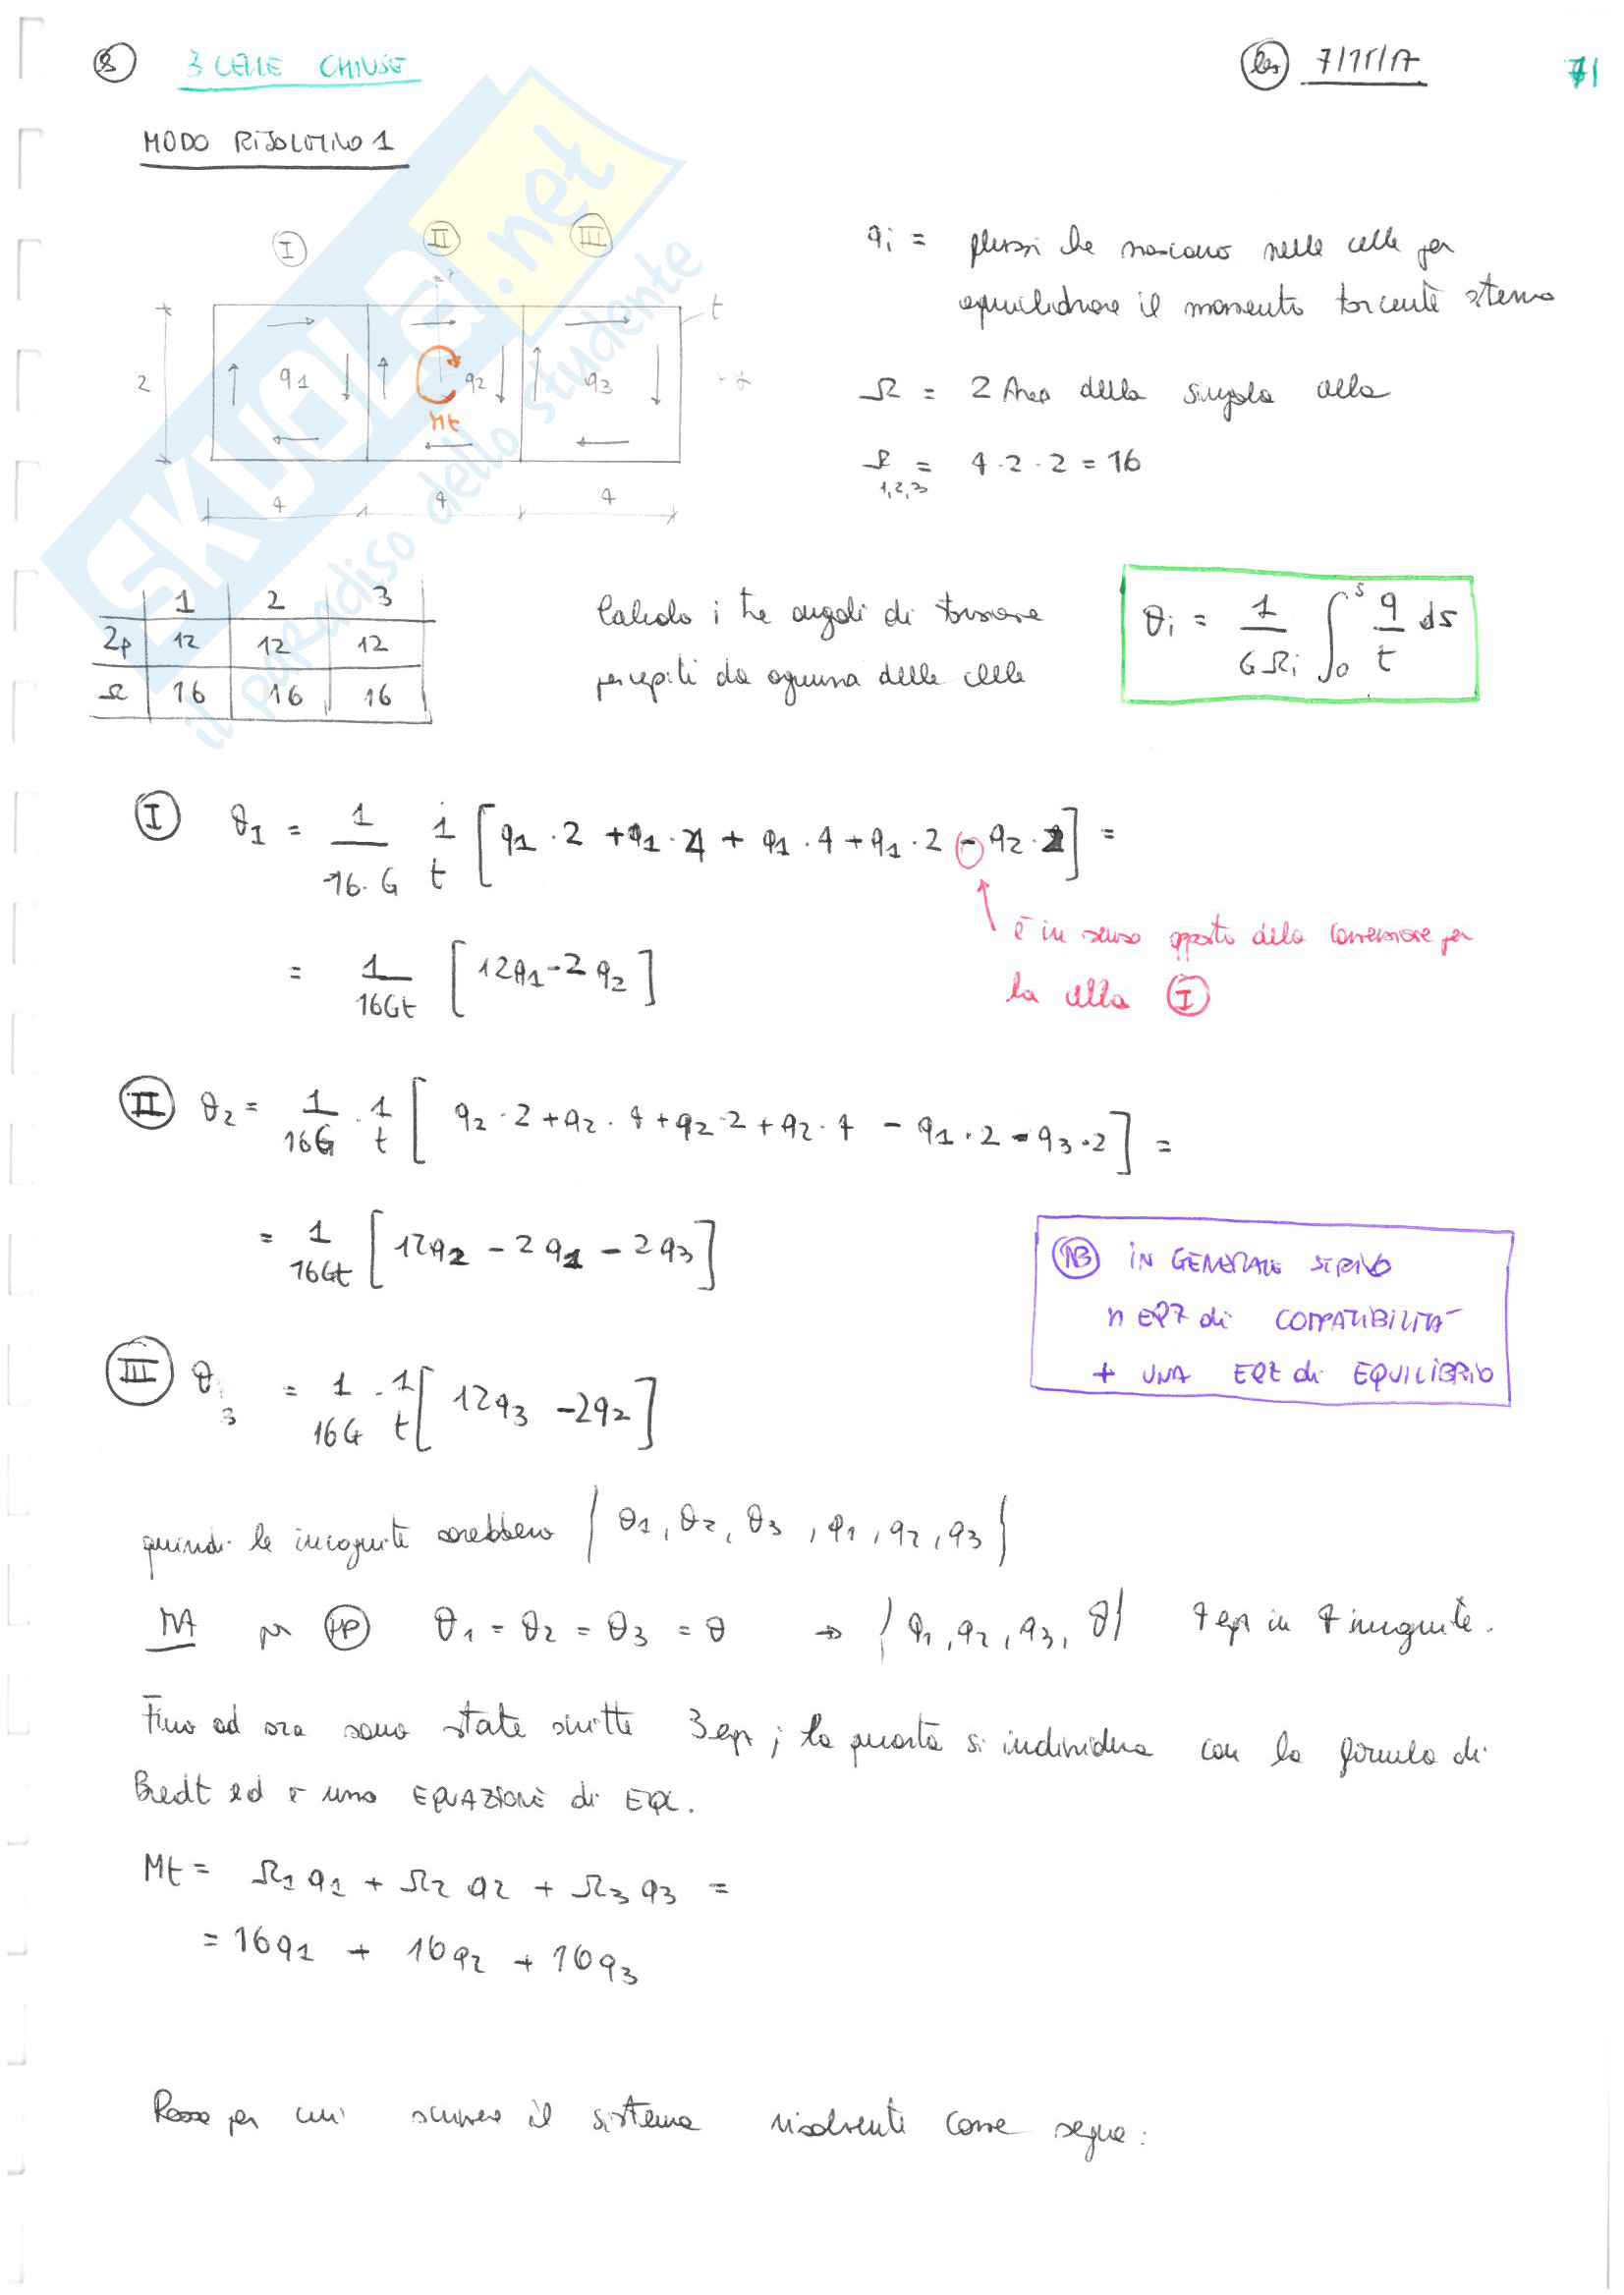 8 3 CELLE CHIUSE
7/11/17
71
MODO RISOLUTIVO 1
I II III
t
2
q1 q2 q3
Mt
4 4 4
qi = flussi che nascono nelle celle per
equilibrare il momento torcente esterno
Ω = 2 Area della singola cella
Ω 1,2,3 = 4·2·2 = 16
1 2 3
2p 12 12 12
Ω 16 16 16
Calcolo i tre angoli di torsione
percepiti da ognuna delle celle
θi = 1/(GΩi) ∫₀ˢ q/t ds
SKUOLA.net
il paradiso dello studente
I θ1 = 1/(16·G) 1/t [q1·2 + q1·4 + q1·4 + q1·2 - q2·2] =
è in senso opposto della convenzione per
la cella I
= 1/(16Gt) [12q1 - 2q2]
II θ2 = 1/(16G) · 1/t [q2·2 + q2·4 + q2·2 + q2·4 - q1·2 - q3·2] =
= 1/(16Gt) [12q2 - 2q1 - 2q3]
NB IN GENERALE SCRIVO
n EQZ di COMPATIBILITÀ
+ UNA EQZ di EQUILIBRIO
III θ3 = 1/(16G) · 1/t [12q3 - 2q2]
quindi le incognite sarebbero {θ1, θ2, θ3, q1, q2, q3}
MA per HP θ1 = θ2 = θ3 = θ → {q1, q2, q3, θ} 4 eqz in 4 incognite.
Fino ad ora sono state scritte 3 eqz; la quarta si individua con la formula di
Bredt ed è una EQUAZIONE di EQL.
Mt = Ω1 q1 + Ω2 q2 + Ω3 q3 =
= 16q1 + 16q2 + 16q3
Posso per cui scrivere il sistema risolvente come segue: